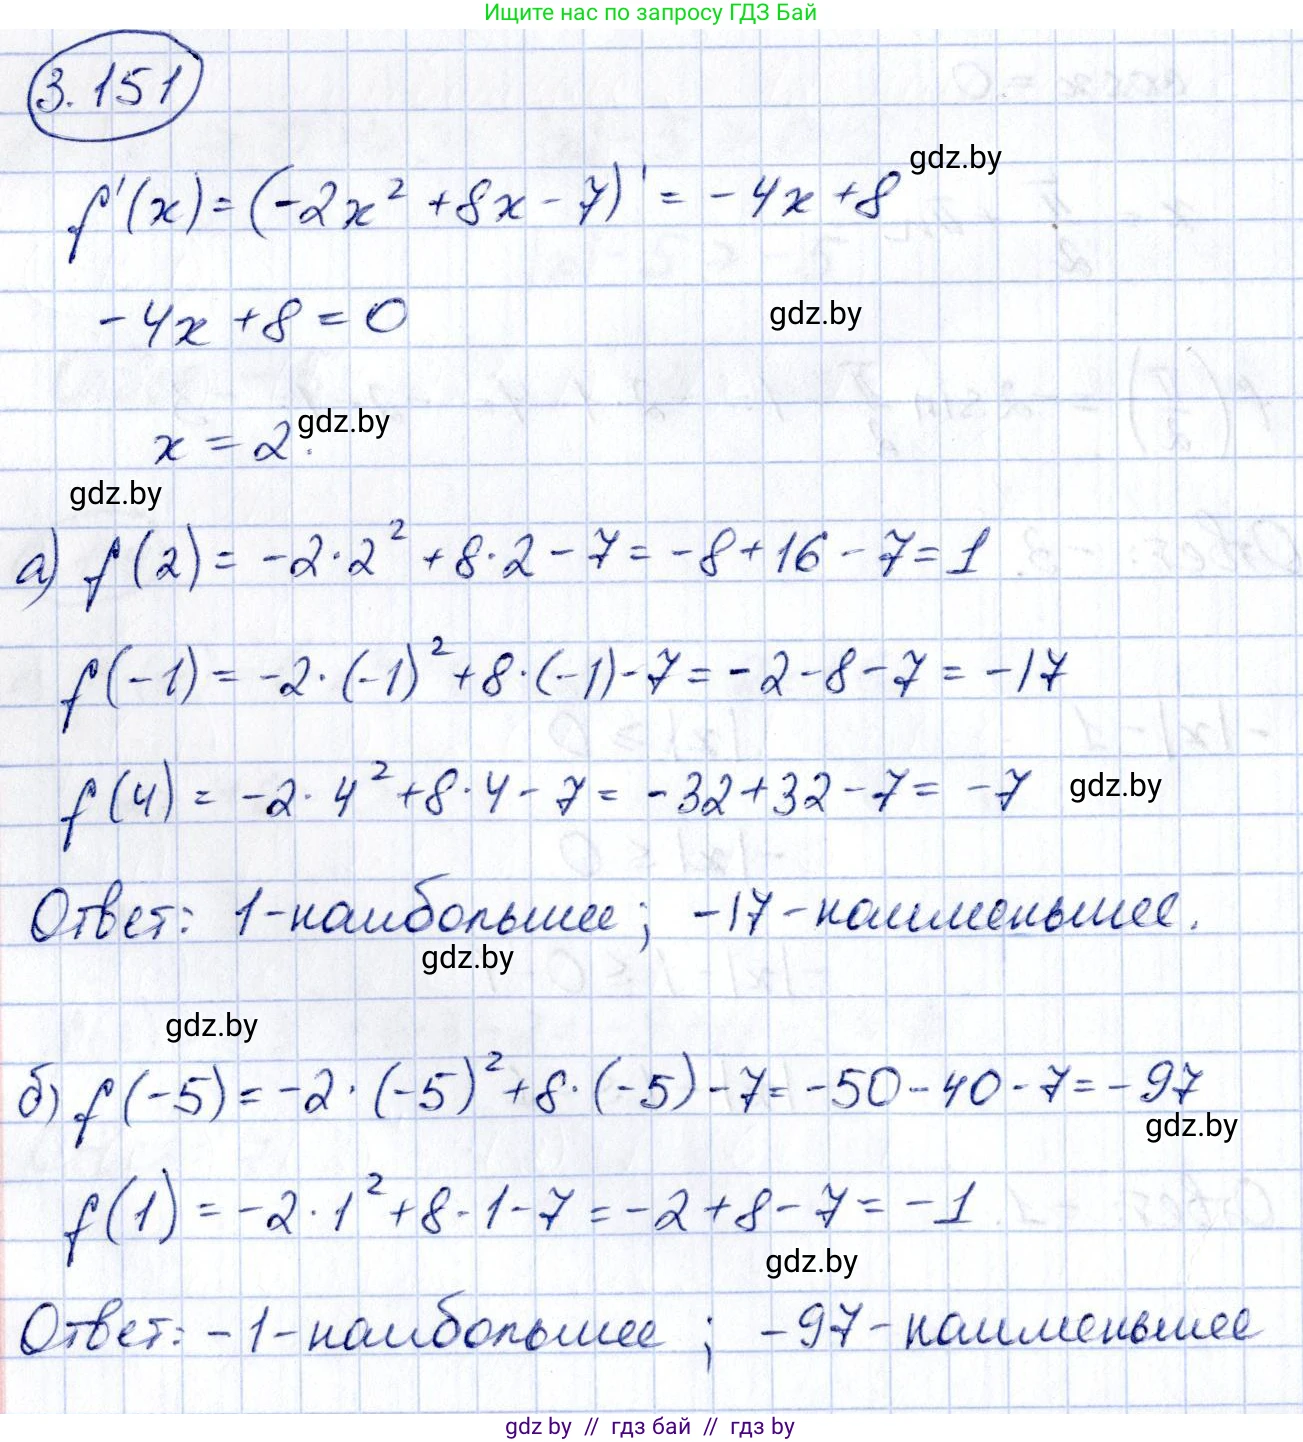 Ищите нас по запросу ГДЗ Бай
3.151
f'(x) = (-2x² + 8x - 7)' = -4x + 8
gdz.by
-4x + 8 = 0
gdz.by
x = 2.
gdz.by
gdz.by
а) f(2) = -2·2² + 8·2 - 7 = -8 + 16 - 7 = 1
f(-1) = -2·(-1)² + 8·(-1) - 7 = -2 - 8 - 7 = -17
f(4) = -2·4² + 8·4 - 7 = -32 + 32 - 7 = -7
gdz.by
Ответ: 1 - наибольшее; -17 - наименьшее.
gdz.by
gdz.by
б) f(-5) = -2·(-5)² + 8·(-5) - 7 = -50 - 40 - 7 = -97
gdz.by
f(1) = -2·1² + 8·1 - 7 = -2 + 8 - 7 = -1
gdz.by
Ответ: -1 - наибольшее; -97 - наименьшее
gdz by // гдз бай // гдз by